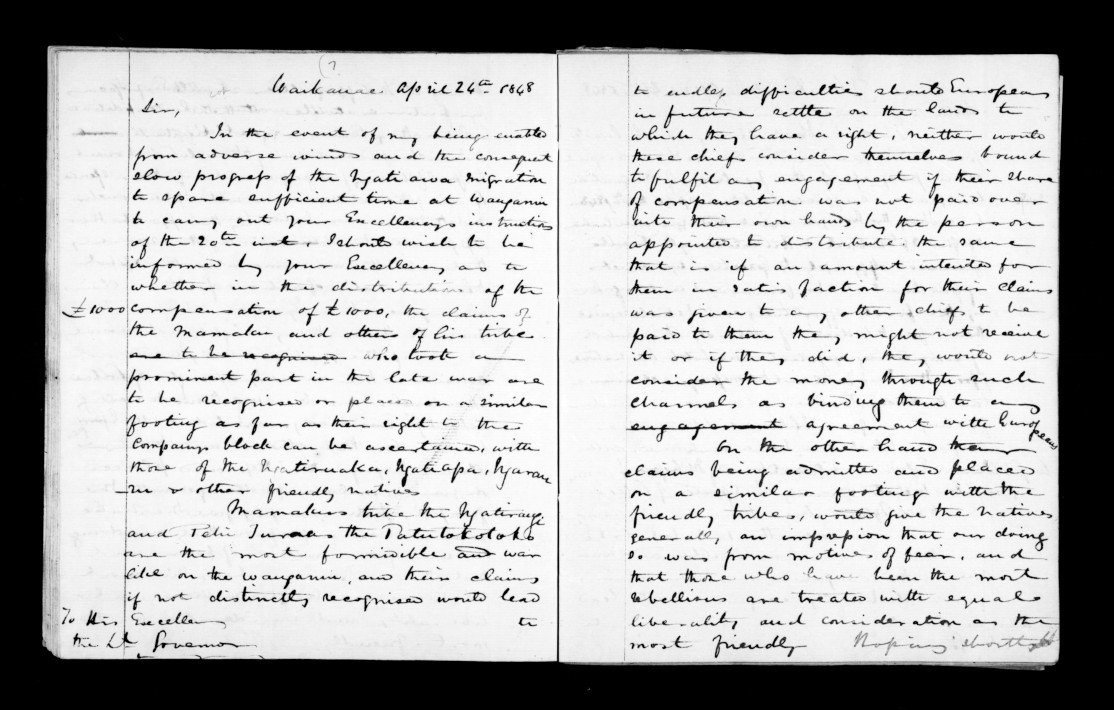 Waikanae April 24th 1848
Sir,
In the event of my being enabled
from adverse winds and the consequent
slow progress of the Ngatiawa migration
to spare sufficient time at Wanganui
to carry out your Excellency's instructions
of the 20th inst I should wish to be
informed by your Excellency as to
whether in the distribution of the
£1000 compensation of £1000, the claims of
the Mamaku, and others of his tribe
are to be recognised who took a
prominent part in the late war are
to be recognised or placed on a similar
footing as far as their right to the
Companys block can be ascertained, with
those of the Ngatiruaka, Ngatiapa, Ngarau
ru & other friendly natives
Mamakus tribe the Ngaterangi
and Pehi Turoas the Patutokotoko
are the most formidible and war
like on the Wanganui, and their claims
if not distinctly recognised would lead
To His Excellency to
the Lt Governor
to endless difficulties should Europeans
in future settle on the lands to
which they have a right, neither would
these chiefs consider themselves bound
to fulfil any engagement if their share
of compensation was not paid over
into their own hands by the person
appointed to distribute the same
that is if an amount intended for
them in satisfaction for their claims
was given to any other chiefs to be
paid to them they might not receive
it or if they did, they would not
consider the money through such
channels as binding them to any
engagement agreement with Europeans
On the other hand their
claims being admitted and placed
on a similar footing with the
friendly tribes, would give the natives
generally an impression that our doing
so was from motives of fear, and
that those who have been the most
rebellious are treated with equal
liberality and consideration as the
most friendly Hoping shortly